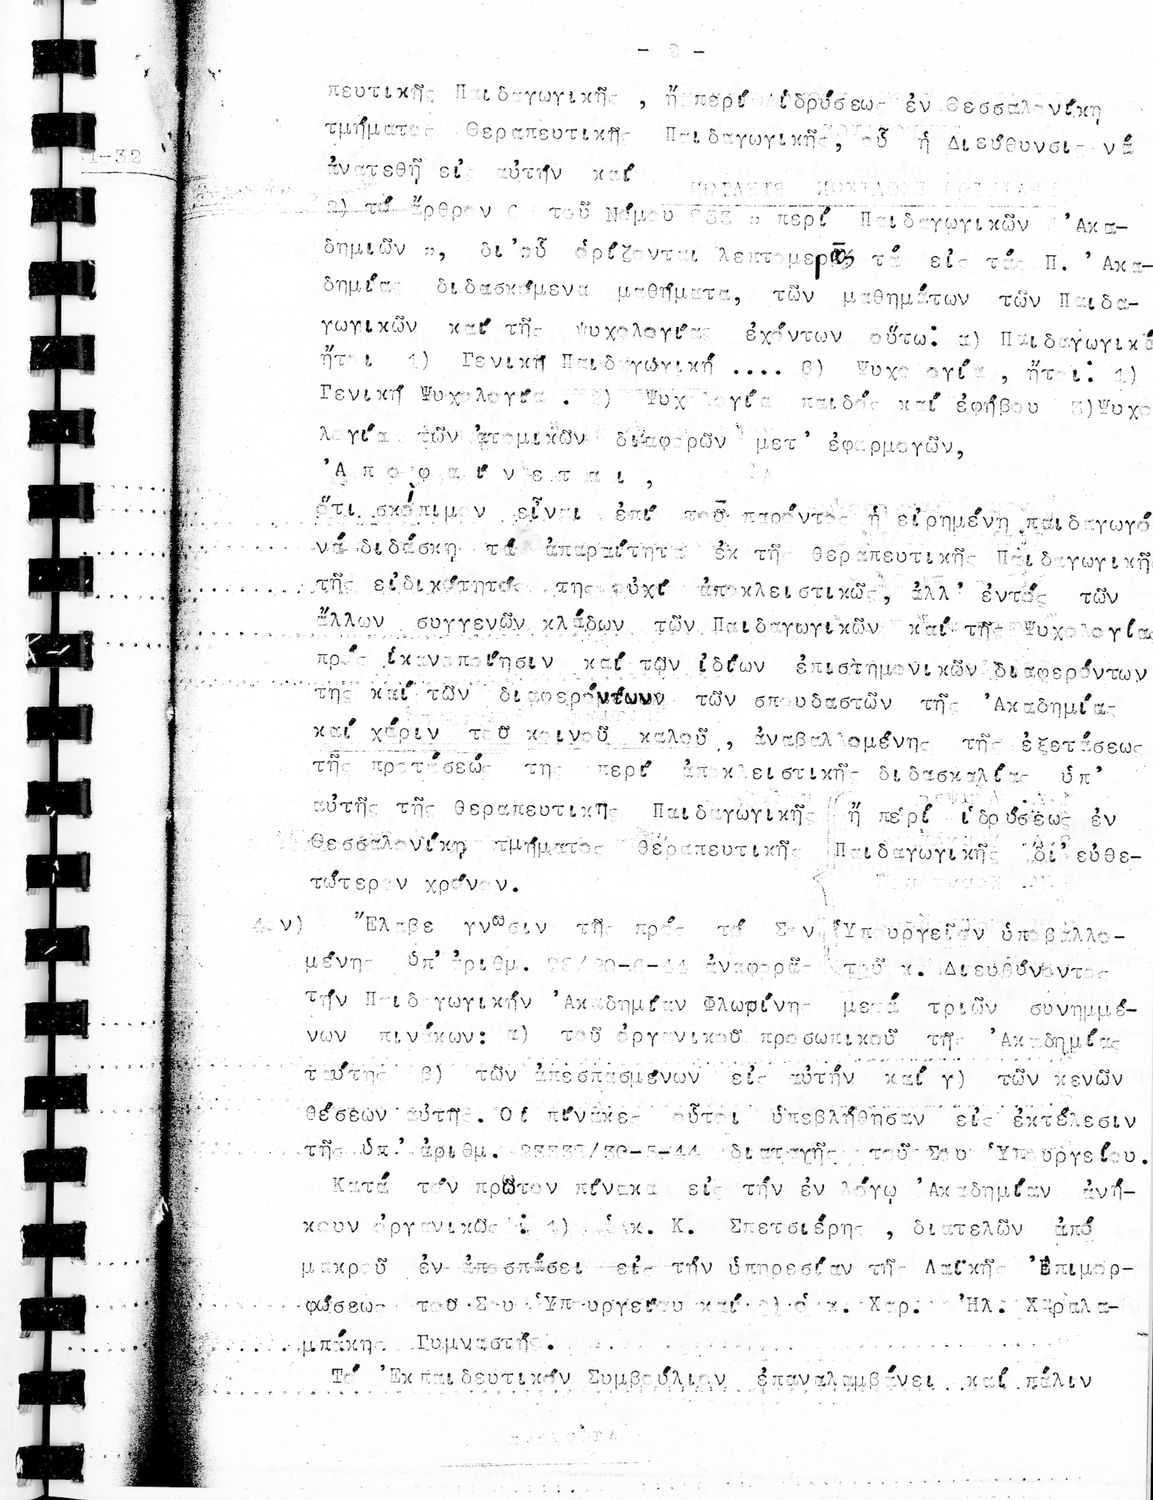 - 8 -
πευτικῆς Παιδαγωγικῆς , ἤ περί ἱδρύσεως ἐν Θεσσαλονίκῃ
τμήματος Θεραπευτικῆς Παιδαγωγικῆς, οὗ ἡ Διεύθυνσις νά
1-32
ἀνατεθῇ εἰς αὐτήν καί
2) τό ἄρθρον 6 τοῦ Νόμου 953 " περί Παιδαγωγικῶν 'Ακα-
δημιῶν ", δι'οὗ ὁρίζονται λεπτομερῶς τά εἰς τάς Π. 'Ακα-
δημίας διδασκόμενα μαθήματα, τῶν μαθημάτων τῶν Παιδα-
γωγικῶν καί τῆς Ψυχολογίας ἐχόντων οὕτω: α) Παιδαγωγικά
ἤτοι 1) Γενική Παιδαγωγική .... β) Ψυχολογία , ἤτοι: 1)
Γενική Ψυχολογία . 2) Ψυχολογία παιδός καί ἐφήβου 3)Ψυχο
λογία τῶν ἀτομικῶν διαφορῶν μετ' ἐφαρμογῶν,
'Α π ο φ α ί ν ε τ α ι ,
ὅτι σκόπιμον εἶναι ἐπί τοῦ παρόντος ἡ εἰρημένη παιδαγωγό
νά διδάσκῃ τά ἀπαραίτητα ἐκ τῆς Θεραπευτικῆς Παιδαγωγικῆς
τῆς εἰδικότητός της οὐχί ἀποκλειστικῶς, ἀλλ' ἐντός τῶν
ἄλλων συγγενῶν κλάδων τῶν Παιδαγωγικῶν καί τῆς Ψυχολογίας
πρός ἱκανοποίησιν καί τῶν ἰδίων ἐπιστημονικῶν διαφερόντων
της καί τῶν διαφερόντων τῶν σπουδαστῶν τῆς 'Ακαδημίας
καί χάριν τοῦ κοινοῦ καλοῦ , ἀναβαλλομένης τῆς ἐξετάσεως
τῆς προτάσεώς της περί ἀποκλειστικῆς διδασκαλίας ὑπ'
αὐτῆς τῆς Θεραπευτικῆς Παιδαγωγικῆς ἤ περί ἱδρύσεως ἐν
Θεσσαλονίκῃ τμήματος Θεραπευτικῆς Παιδαγωγικῆς δι' εὐθε-
τώτερον χρόνον.
4ον) "Ελαβε γνῶσιν τῆς πρός τό Σον 'Υπουργεῖον ὑποβαλλο-
μένης ὑπ'ἀριθμ. 20-6-44 ἀναφορᾶς τοῦ κ. Διευθύνοντος
τήν Παιδαγωγικήν 'Ακαδημίαν Φλωρίνης μετά τριῶν συνημμέ-
νων πινάκων: α) τοῦ ὀργανικοῦ προσωπικοῦ τῆς 'Ακαδημίας
ταύτης β) τῶν ἀπεσπασμένων εἰς αὐτήν καί γ) τῶν κενῶν
θέσεων αὐτῆς. Οἱ πίνακες οὗτοι ὑπεβλήθησαν εἰς ἐκτέλεσιν
τῆς ὑπ' ἀριθμ. 30-5-44 διαταγῆς τοῦ Σου 'Υπουργείου.
Κατά τόν πρῶτον πίνακα εἰς τήν ἐν λόγῳ 'Ακαδημίαν ἀνή-
κουν ὀργανικῶς : 1) ὁ κ. Κ. Σπετσιέρης , διατελῶν ἀπό
μακροῦ ἐν ἀποσπάσει εἰς τήν ὑπηρεσίαν τῆς Λαϊκῆς 'Επιμορ-
φώσεως τοῦ Σου 'Υπουργείου καί 2) ὁ κ. Χαρ. 'Ηλ. Χαραλα-
μπάκης Γυμναστής.
Τό 'Εκπαιδευτικόν Συμβούλιον ἐπαναλαμβάνει καί πάλιν